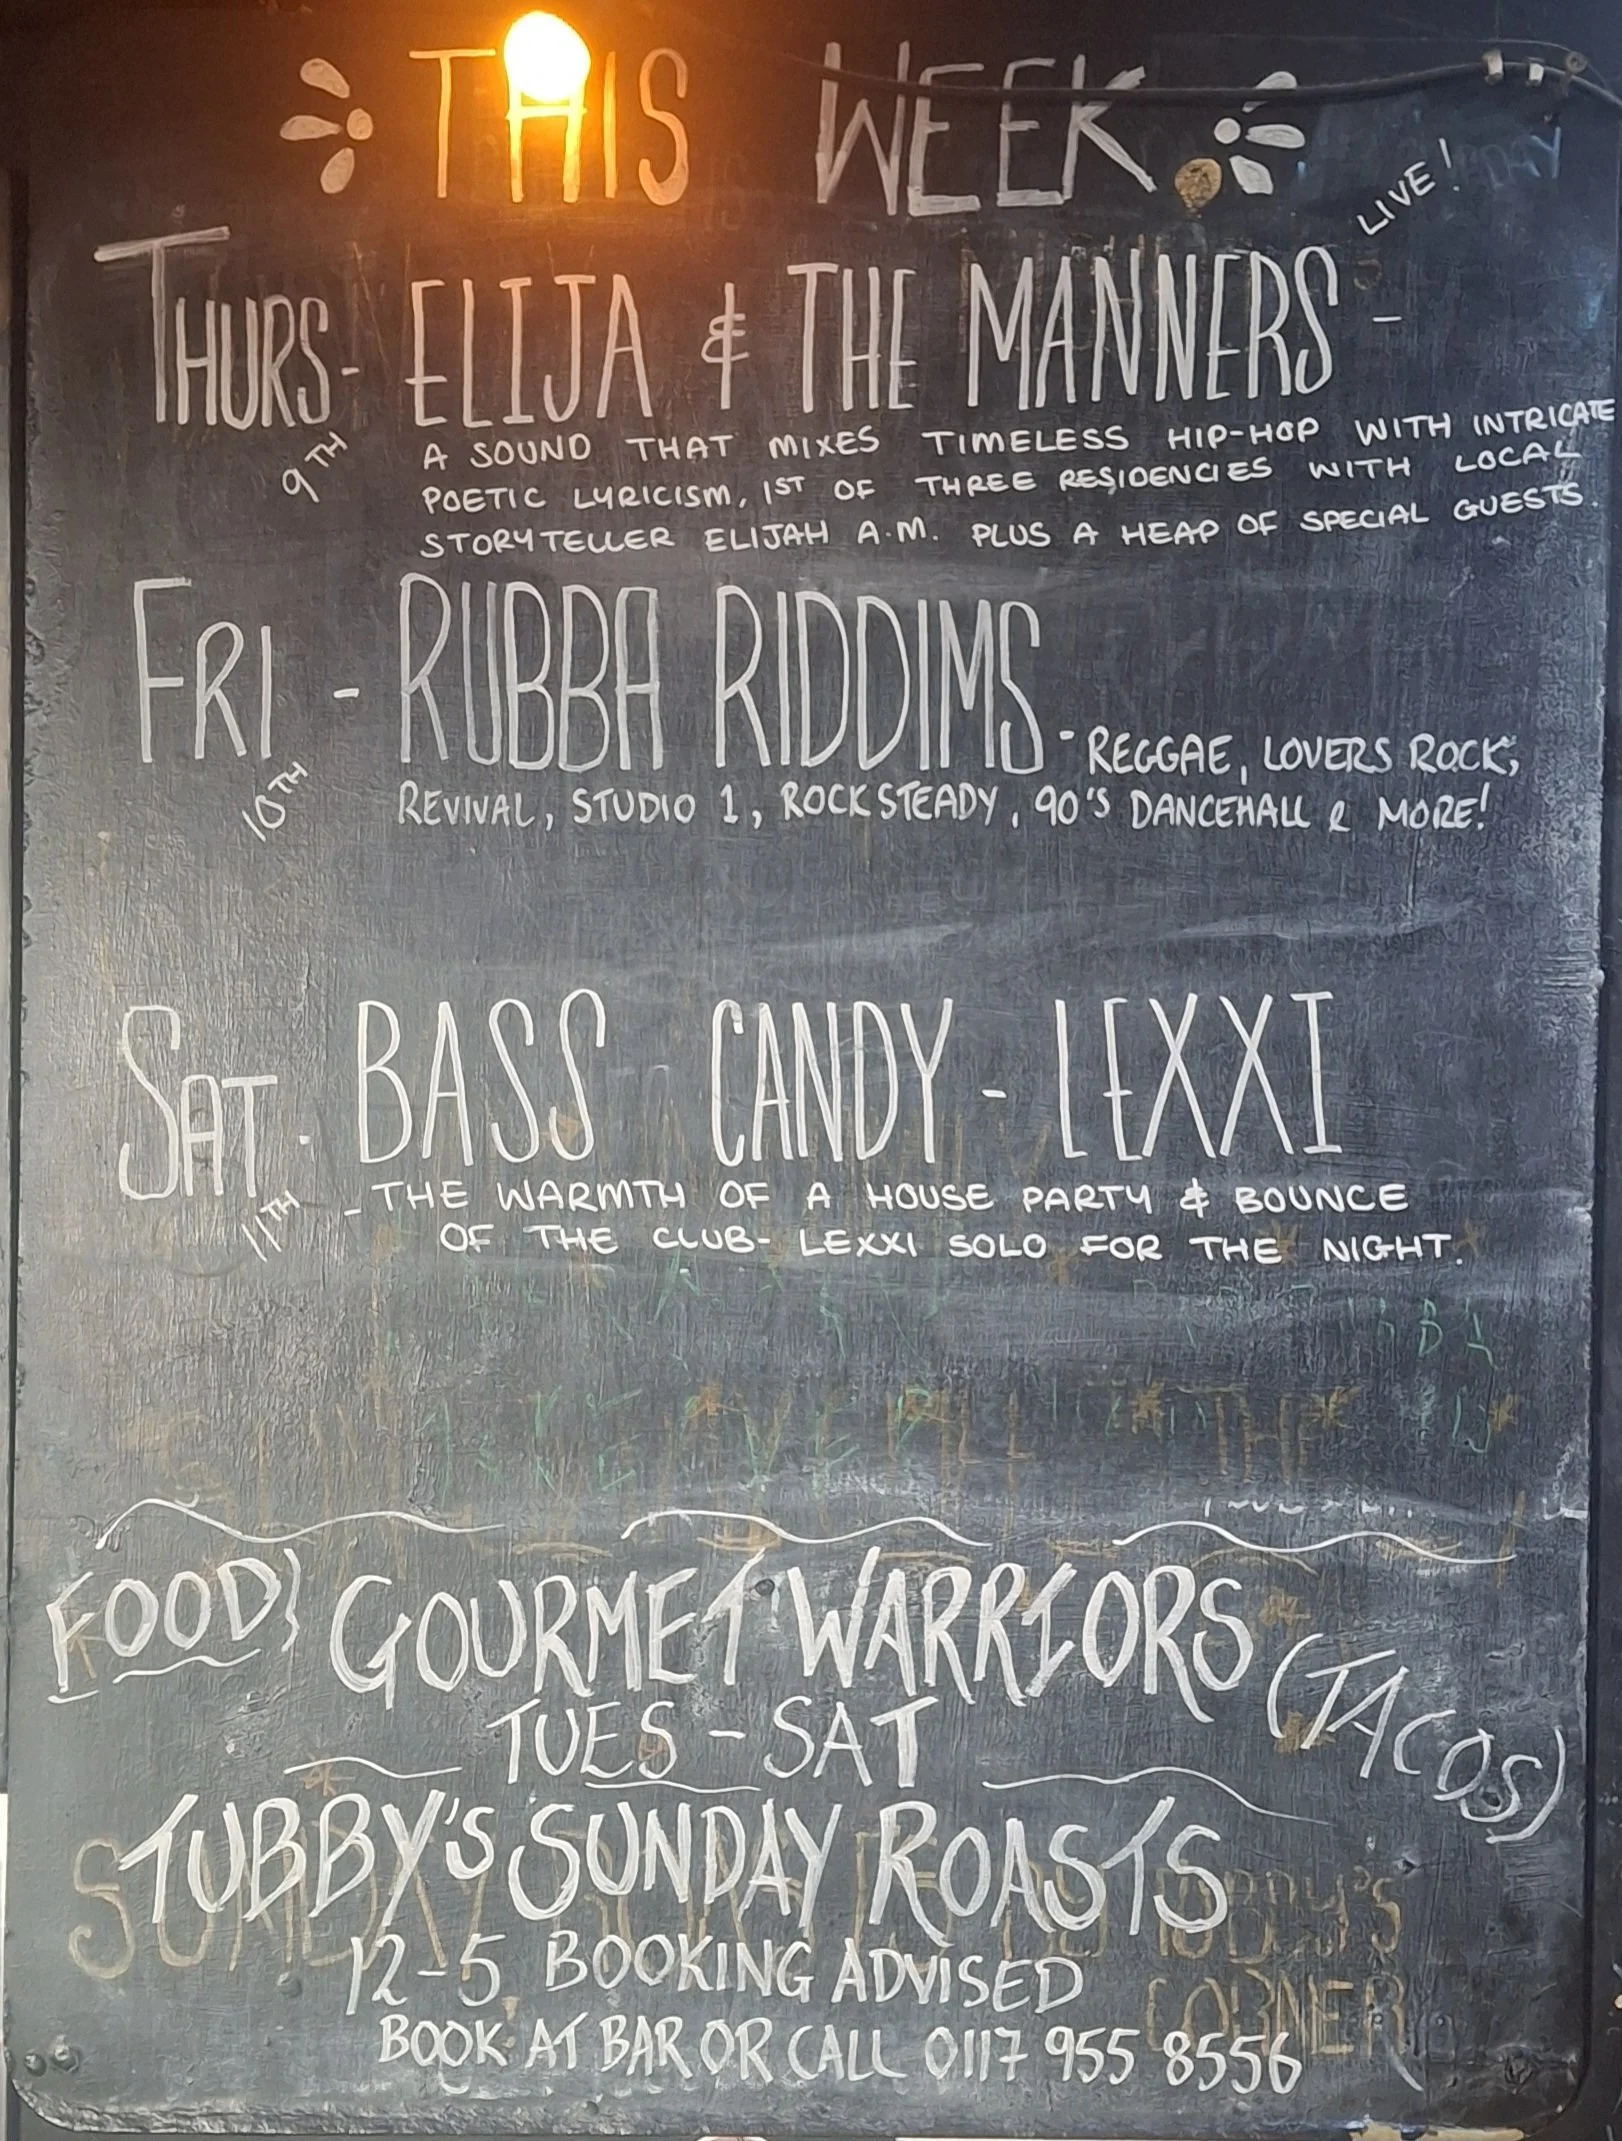 THIS WEEK
THURS - ELIJA & THE MANNERS - LIVE!
9TH
A SOUND THAT MIXES TIMELESS HIP-HOP WITH INTRICATE
POETIC LYRICISM, 1ST OF THREE RESIDENCIES WITH LOCAL
STORYTELLER ELIJAH A.M. PLUS A HEAP OF SPECIAL GUESTS.
FRI - RUBBA RIDDIMS - REGGAE, LOVERS ROCK,
10TH
REVIVAL, STUDIO 1, ROCKSTEADY, 90'S DANCEHALL & MORE!
SAT - BASS CANDY - LEXXI
11TH
- THE WARMTH OF A HOUSE PARTY & BOUNCE
OF THE CLUB - LEXXI SOLO FOR THE NIGHT.
FOOD} GOURMET WARRIORS (TACOS)
TUES - SAT
TUBBY'S SUNDAY ROASTS
12-5 BOOKING ADVISED
CORNER
BOOK AT BAR OR CALL 0117 955 8556